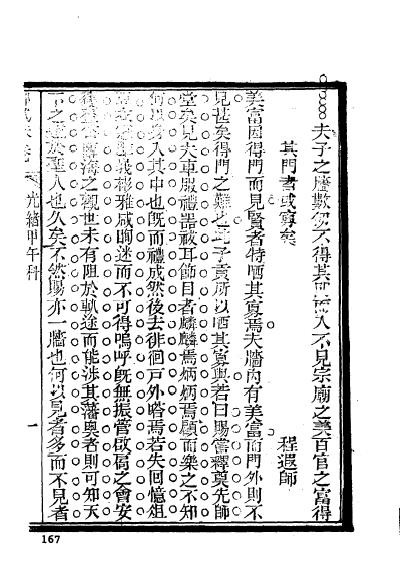 夫子之牆數仞不得其門而入不見宗廟之美百官之富得
其門者或寡矣 程遐師
美富因得門而見賢者特哂其寡焉夫牆內有美富而門外則不
見甚矣得門之難也此子貢所以哂其寡與若曰賜嘗釋奠先師
堂矣見夫車服禮器被耳節目者麟麟焉炳炳焉願而樂之不知
何以身入其中也旣而禮成然後去徘徊戶外嗒焉若失回憶俎
彬雅咸眴迷而不可得嗚呼旣無振管啟扃之會安
海之觀世未有阻於軌途而能涉其藩奧者則可知天
下之遠於聖人也久矣不然賜亦一牆也何以見者多而不見者
光緒甲午科 一
167